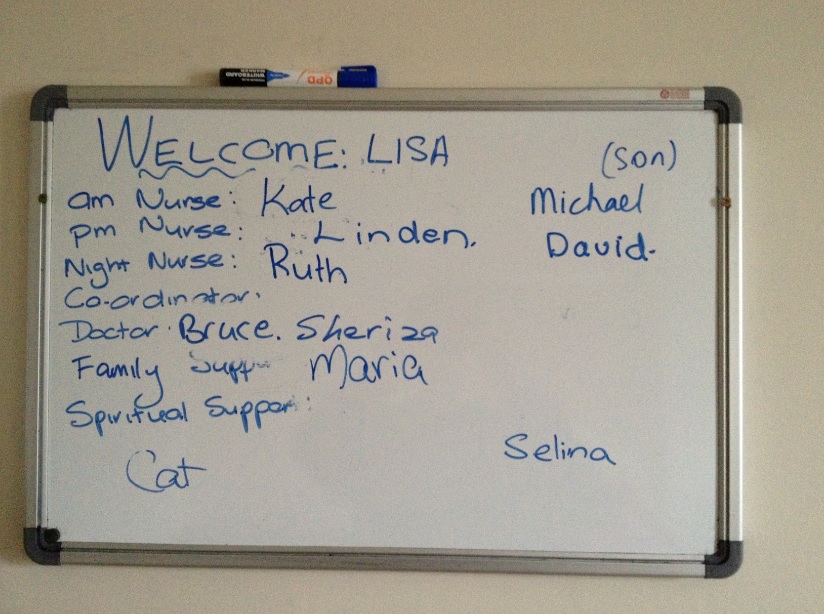 WELCOME: LISA (son)
am Nurse: Kate Michael
pm Nurse: Linden. David.
Night Nurse: Ruth
Co-ordinator:
Doctor. Bruce. Sheriza
Family Supp Maria
Spiritual Suppor:
Cat Selina
QPD
WHITEBOARD